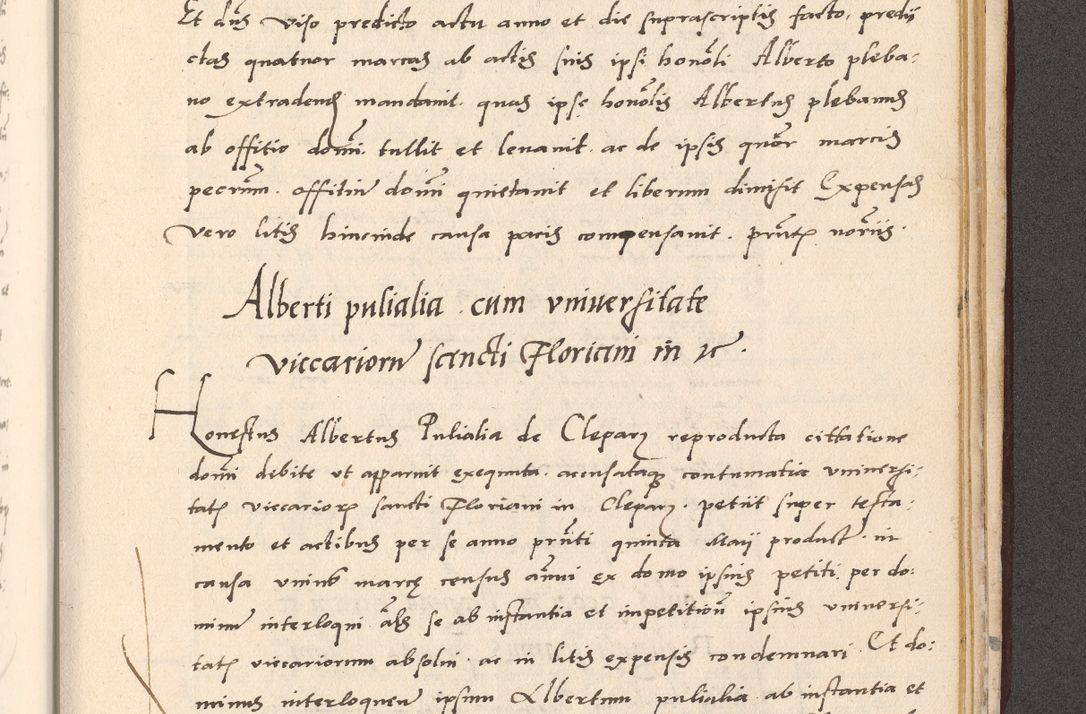 Et dns viso predicto actu anno et die suprascriptis facto, predi
ctas quatuor marcas ab actis suis ipsi honobli Alberto pleba:
no extradendas mandauit. quas ipse honoblis Albertus plebanus
ab offitio domi. tullit et leuauit. ac de ipsis quor marcis
pecrum. offitiu domi quietauit et liberum dimisit Expensas
vero litis hincinde causa pacis compensauit. pntp noriis.
Alberti pulialia cum vniuersitate
viccarioru sancti Floriani in re.
Honestus Albertus Pulialia de Clepary reproducta cittatione
domi debite vt apparuit exequuta. accusataque contumatia vniuersi:
tatis viccariorum sancti Floriani in Clepary. petiit super testa:
mento et actibus per se anno pnti quinta Maii product. in
causa vnius marcę census annui ex domo ipsius petiti per do:
minu interloqui als se ab instantia et impetition ipsius vniuersi:
tatis viccariorum absolui. ac in litis expensis condemnari. Et do:
minus interloquen ipsum Albertum pulialia ab instantia et